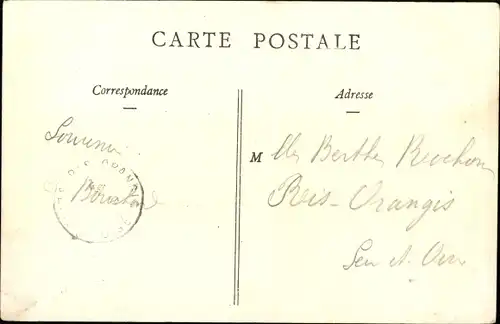 CARTE POSTALE
Correspondance
Adresse
Souvenir
M lle Berthe
Ris-Orangis
Sein et Oise